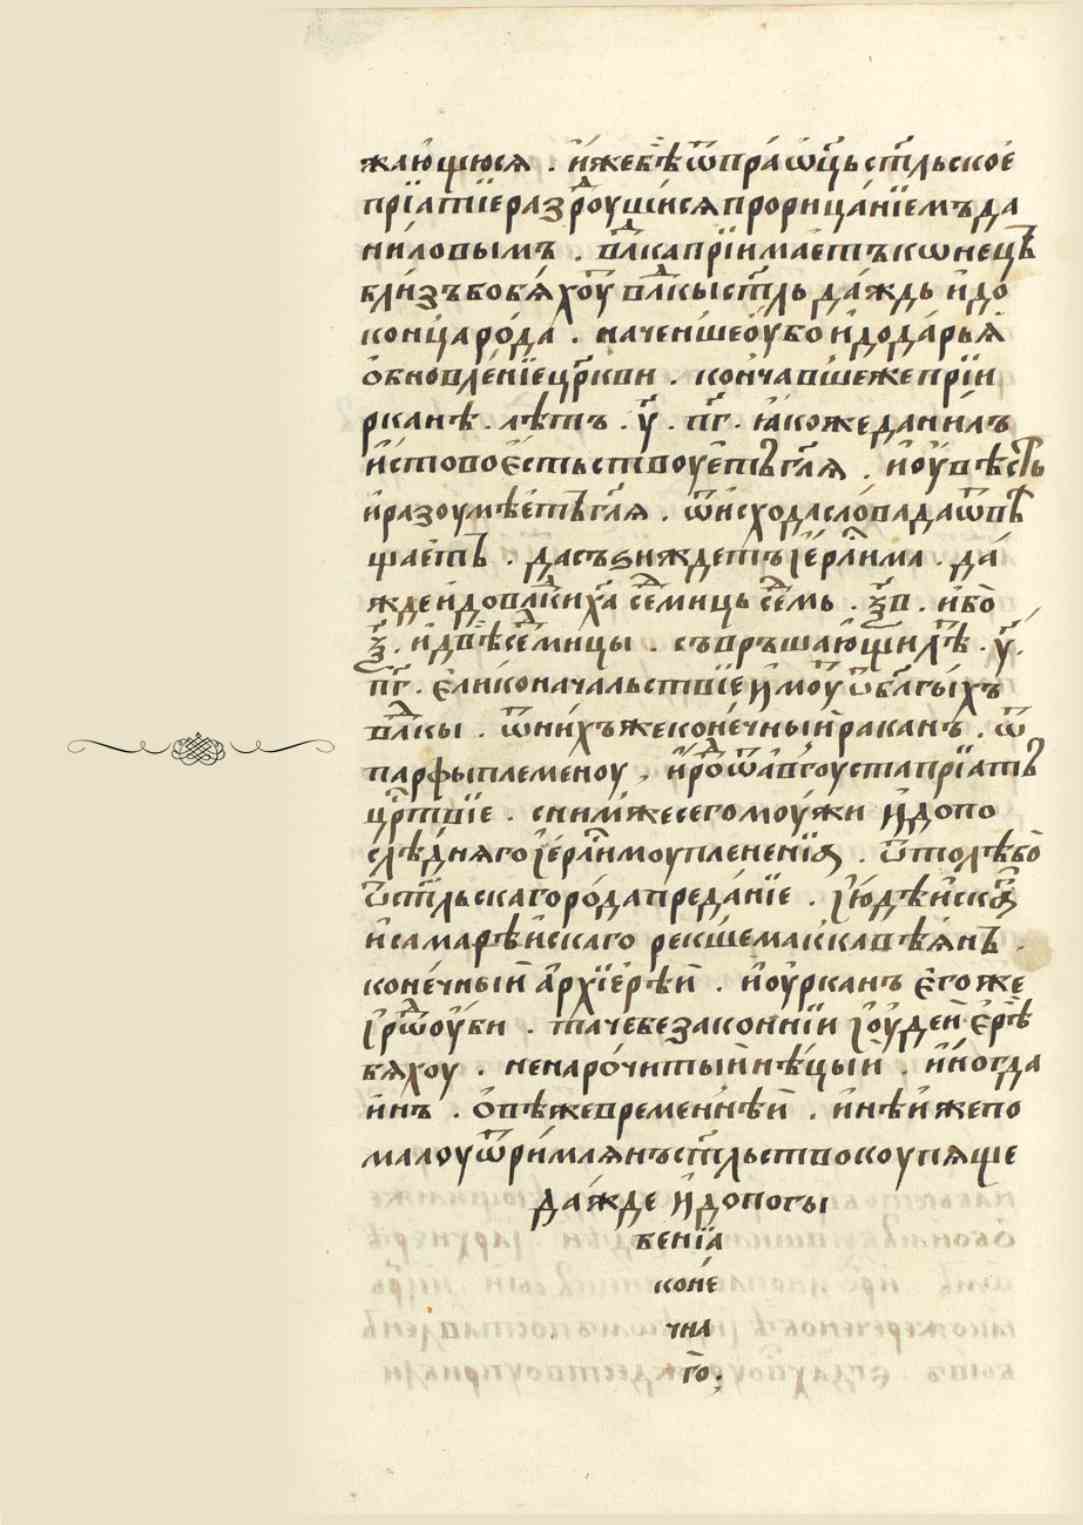 жаю́щюсѧ . и҆́жебѣ̀ ѿпра́ѡ҆ц҃ь ст҃льское
прїа́тїе разⷣроушісѧ прорица́нїемъ да
ни́ловымъ . влⷣка прїима́етъ конецъ
бли́зъ бо бѧ́хоу влⷣкы ст҃ль да́ждь и҆ до
конца ро́да . наче́ншеоубо и҆ до да́рьѧ
ѻ҆бновле́нїе цр҃кви . конча́вшеже прїи
рканѣ . лѣтъ . у҃ . пг҃ . ꙗ҆́коже данилъ
и҆́стовоє҆стьствоуетъ гл҃ѧ . и҆оувѣсть
и҆разоумѣетъ гл҃ѧ . ѿисхода словада ѿвѣ
щаетъ . дасъзиждетъ їер҃лима . да́
жде и҆ до влⷣкиха се́дмиць се́дмь . ѯ҃в . и҆бо
ѯ҃ . и҆ двѣ се́дмицы . съвръша́ющи лѣ . у҃ .
пг҃ . є҆лико нача́льствїе и҆моу ѿ бл҃гы́хъ
влⷣкы . ѿ ни́хъже коне́чный ракан̾ъ . ѿ
парфы племеноу , и҆́роⷣ ѿ а҆́вгоуста прїатъ
црⷭ҇твїе . сни́мже сего моу́жи и҆ допо
слѣ́днѧго їер҃лимоу пленени́ꙗ . ѿтолѣбо
ѿ ст҃льскаго ро́да преда́нїе . їюдѣ́иско
и҆ самарѣ́искаго рекше маккавѣѧнъ .
коне́чный а҆рхїере́й . и҆оурканъ є҆гоже
їрѡⷣ оу҆би . таче беззаконнїи їоуде́й є҆рѣ̀
бѧхоу . ненаро́читый нѣ́цый . и҆́ногда
и҆нъ . ѻ҆вѣже време́ннѣй . и҆нѣи́же по
малоу ѿ ри́млѧнъ ст҃льство коупѧще
да́жде и҆ допогы
бенїа
коне́
чна
го .